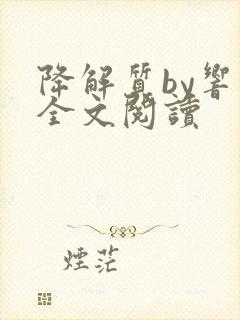 降解質by響
全文閱讀
煙茫